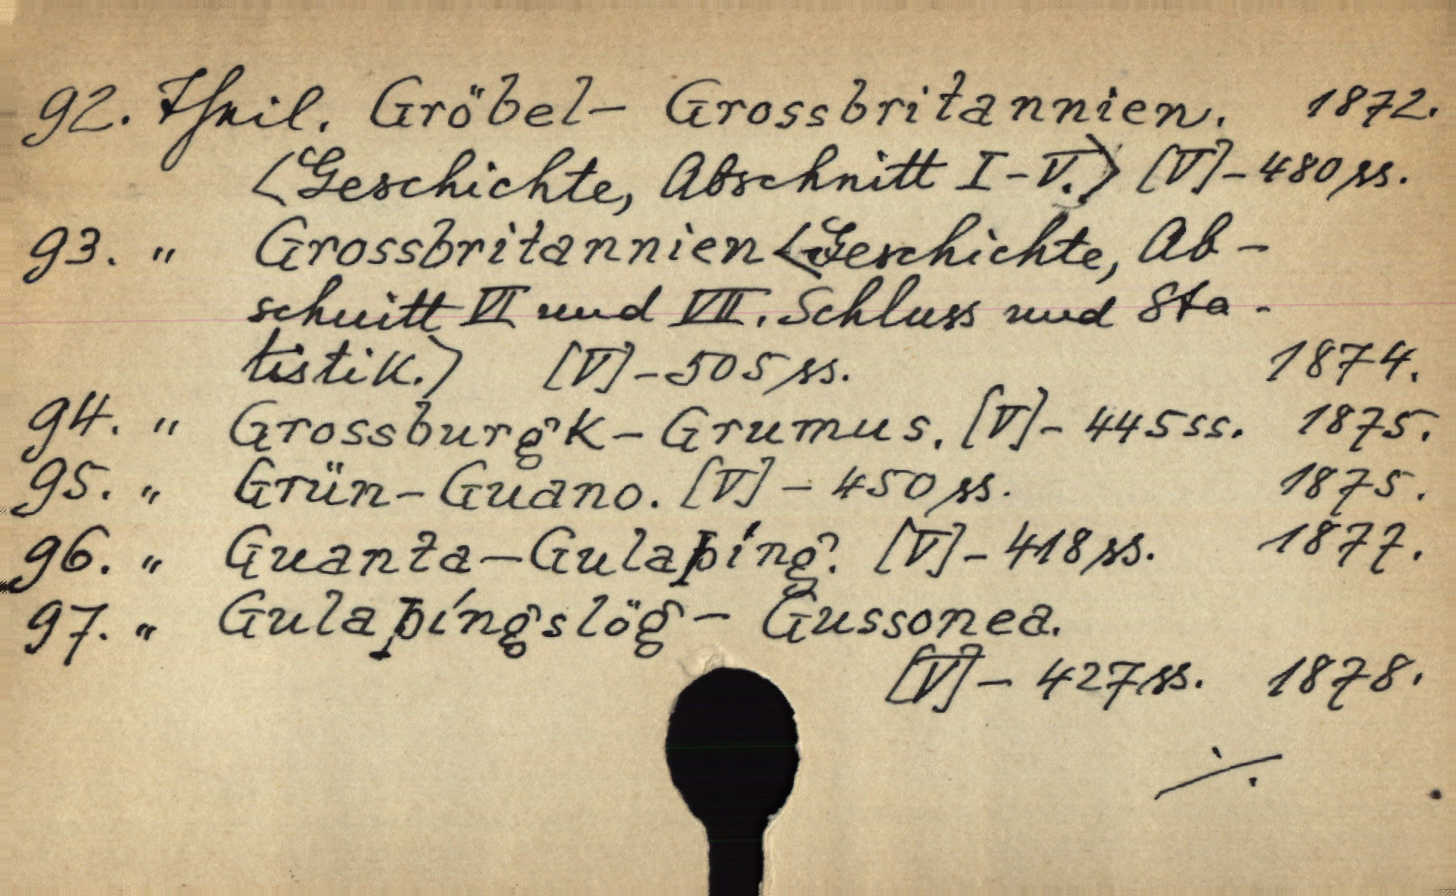 92. Theil. Gröbel- Grossbritannien. 1872.
<Geschichte, Abschnitt I-V.> [V]-480 ss.
93. " Grossbritannien <Geschichte, Ab-
schnitt VI und VII. Schluss und Sta-
tistik.> [V]-505 ss. 1874.
94. " Grossburgk-Grumus. [V]- 445 ss. 1875.
95. " Grün-Guano. [V] - 450 ss. 1875.
96. " Guanta-Gulaþing. [V]-418 ss. 1877.
97. " Gulaþíngslög- Gussonea.
[V]- 427 ss. 1878.
./.